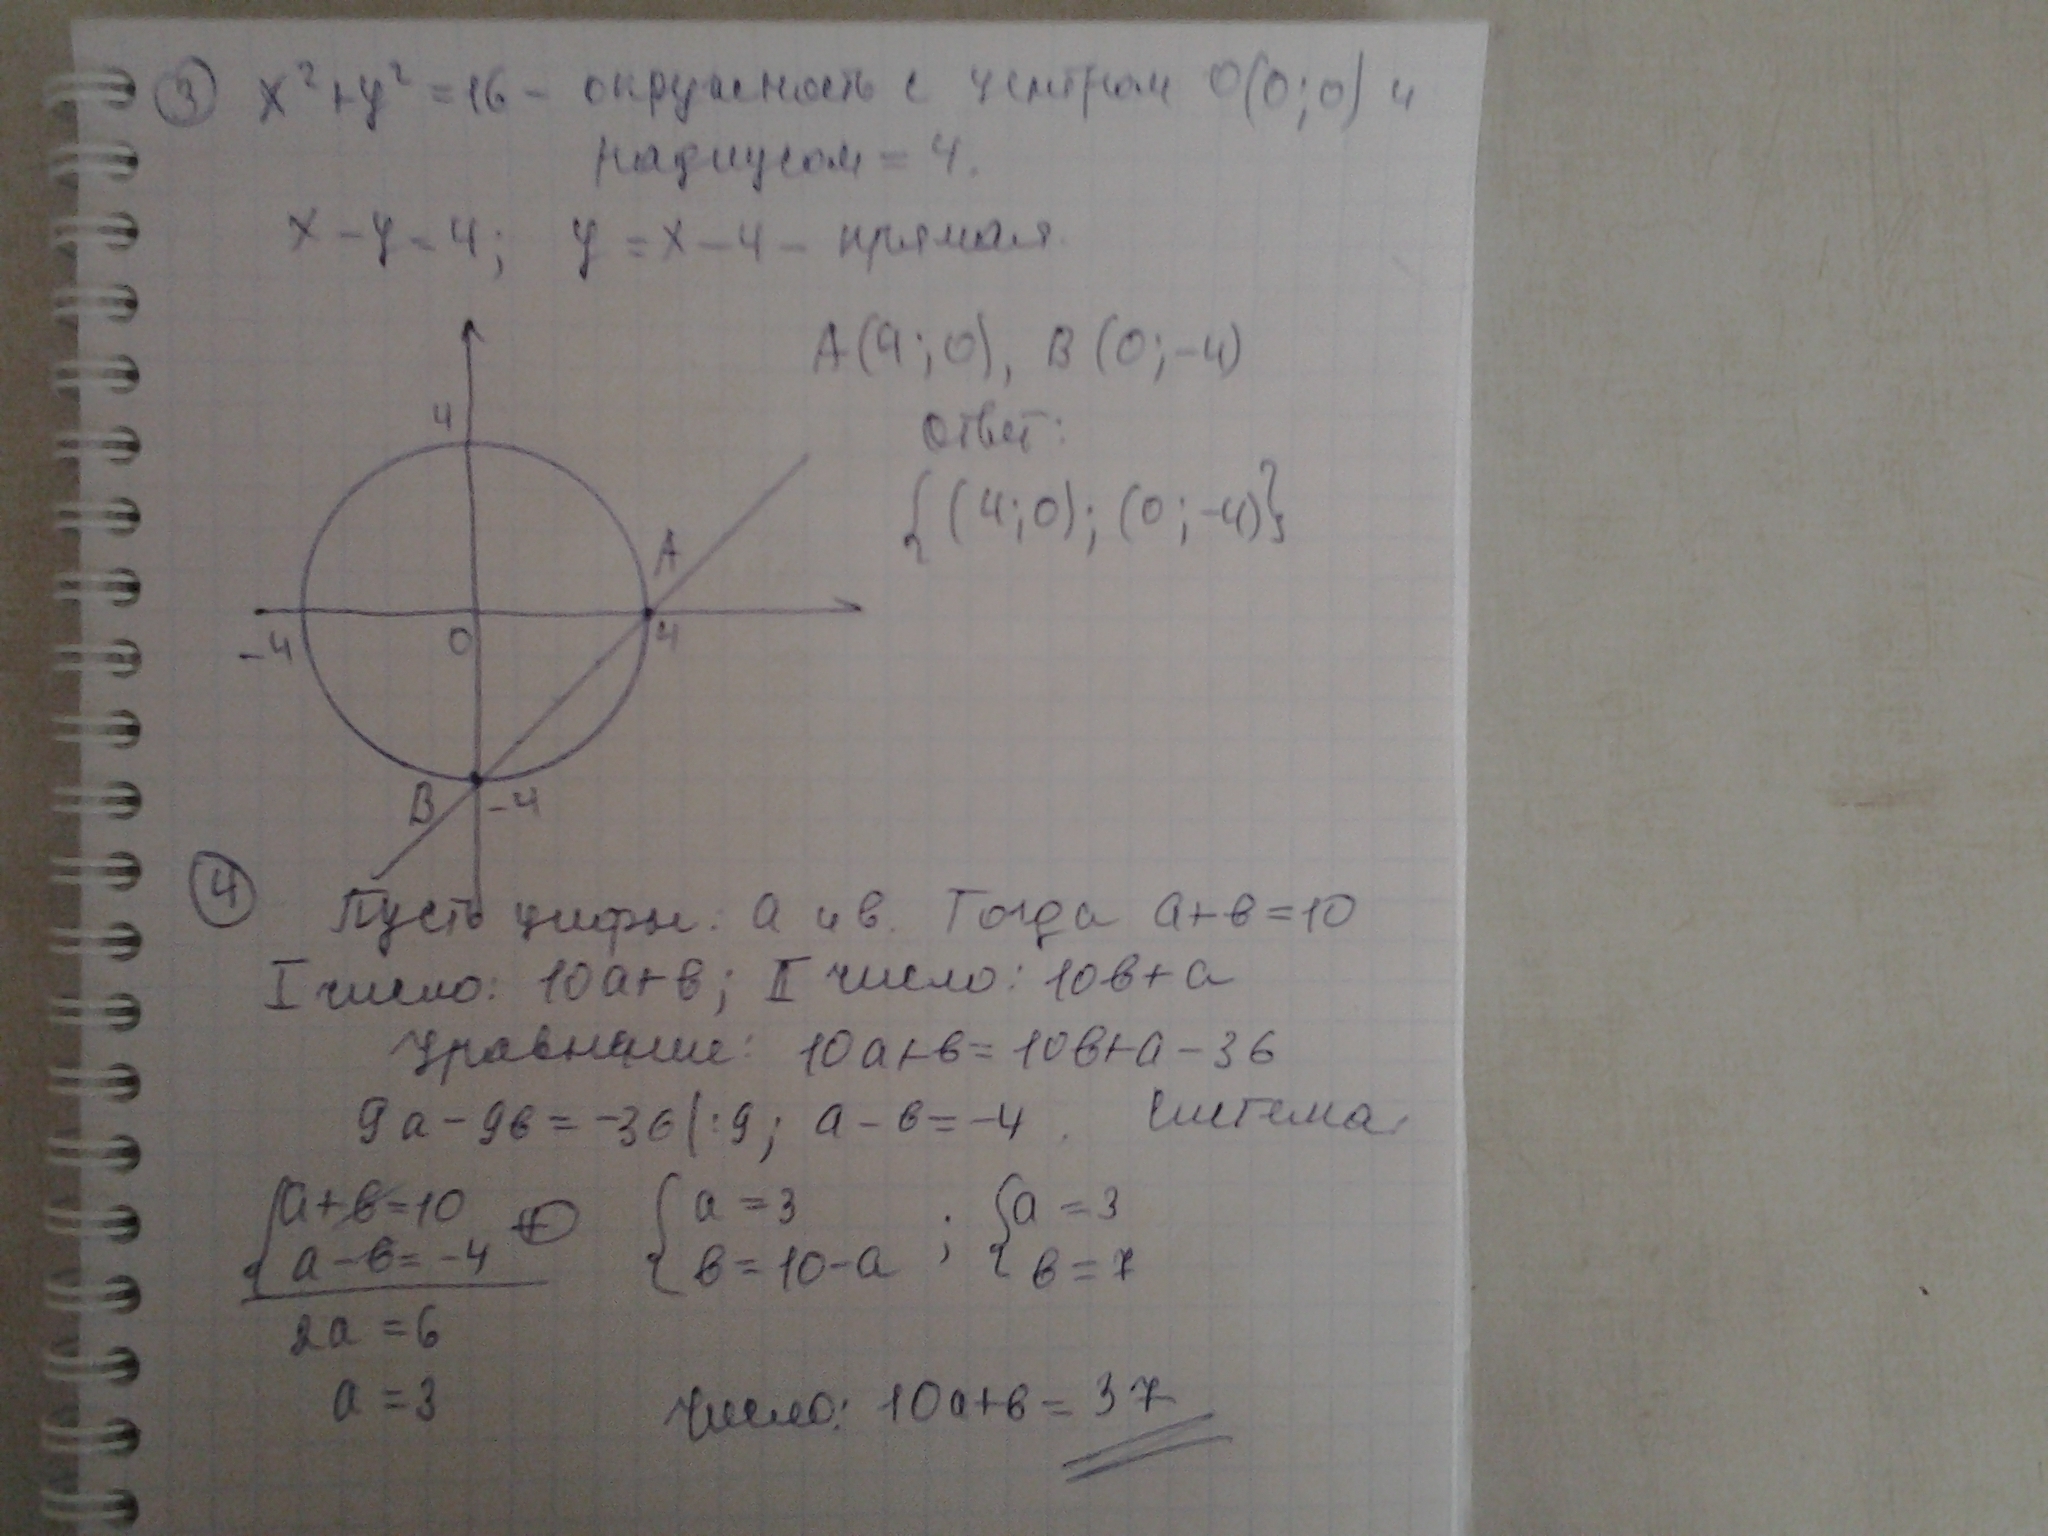 ③ x²+y²=16 – окружность с центром O(0;0) и
радиусом = 4.
x – y = 4; y = x – 4 – прямая.
A(4;0), B(0;-4)
Ответ:
{(4;0); (0;-4)}
4
A
-4 0 4
B -4
④ Пусть цифры: a и в. Тогда a+в=10
I число: 10a+в; II число: 10в+a
Уравнение: 10a+в=10в+a–36
9a–9в=-36|:9; a–в=-4. Система
{a+в=10
a–в=-4 ⊕
2a=6
a=3
{a=3
в=10-a ;
{a=3
в=7
Число: 10a+в=37